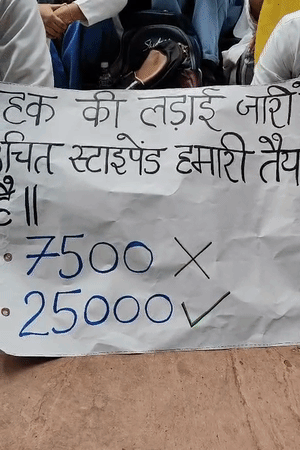 हक की लड़ाई जारी
उचित स्टाइपेंड हमारी तैय
है॥
7500 ×
25000 ✓